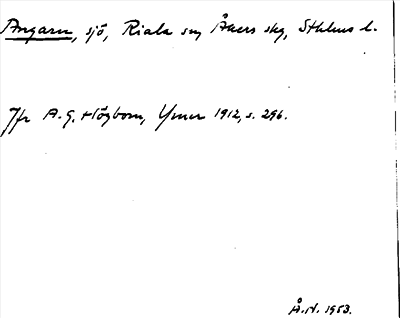 Angarn, sjö, Riala sn, Åkers skg, Sthlms l.
Jfr A.G. Högbom, Ymer 1912, s. 296.
Å.N. 1953.